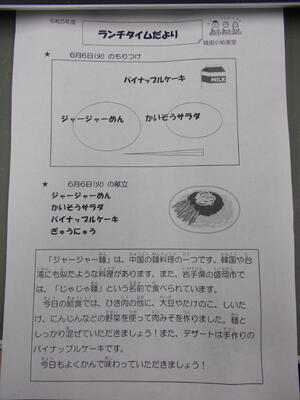 令和5年度
ランチタイムだより
給食室
★ 6月6日(火)のもりつけ
パイナップルケーキ
MILK
ジャージャーめん
かいそうサラダ
★ 6月6日(火)の献立
ジャージャーめん
かいそうサラダ
パイナップルケーキ
ぎゅうにゅう
「ジャージャー麺」は、中国の麺料理の一つです。韓国や台
湾にも似たような料理があります。また、岩手県の盛岡市で
は、「じゃじゃ麺」という名前で食べられています。
今日の給食では、ひき肉の他に、大豆やたけのこ、しいた
け、にんじんなどの野菜を使って肉みそを作りました。麺と
しっかり混ぜていただきましょう！また、デザートは手作りの
パイナップルケーキです。
今日もよくかんで味わっていただきましょう！